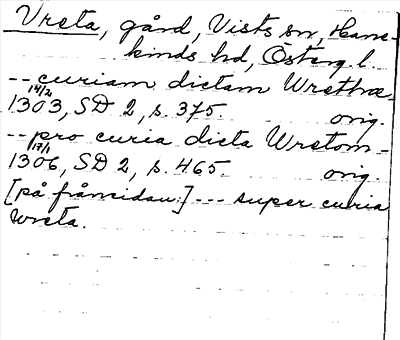 Vreta, gård, Vists sn, Hane-
kinds hd, Österg. l.
-- curiam dictam Wrethæ-
14/2
1303, SD 2, s. 375. orig.
-- pro curia dicta Wretom -
17/1
1306, SD 2, s. 465. orig.
[på framsidan:] --- super curia
wreta.